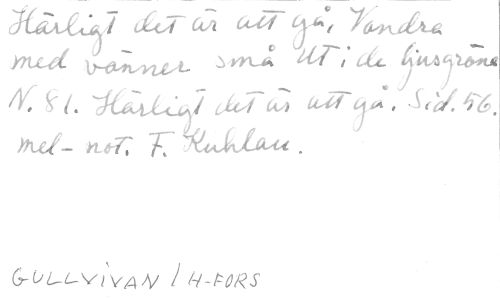 Härligt det är att gå, Vandra
med vänner små Ut i de ljusgröna
N. 81. Härligt det är att gå. Sid. 56.
mel- not. F. Kuhlau.
GULLVIVAN / H-FORS